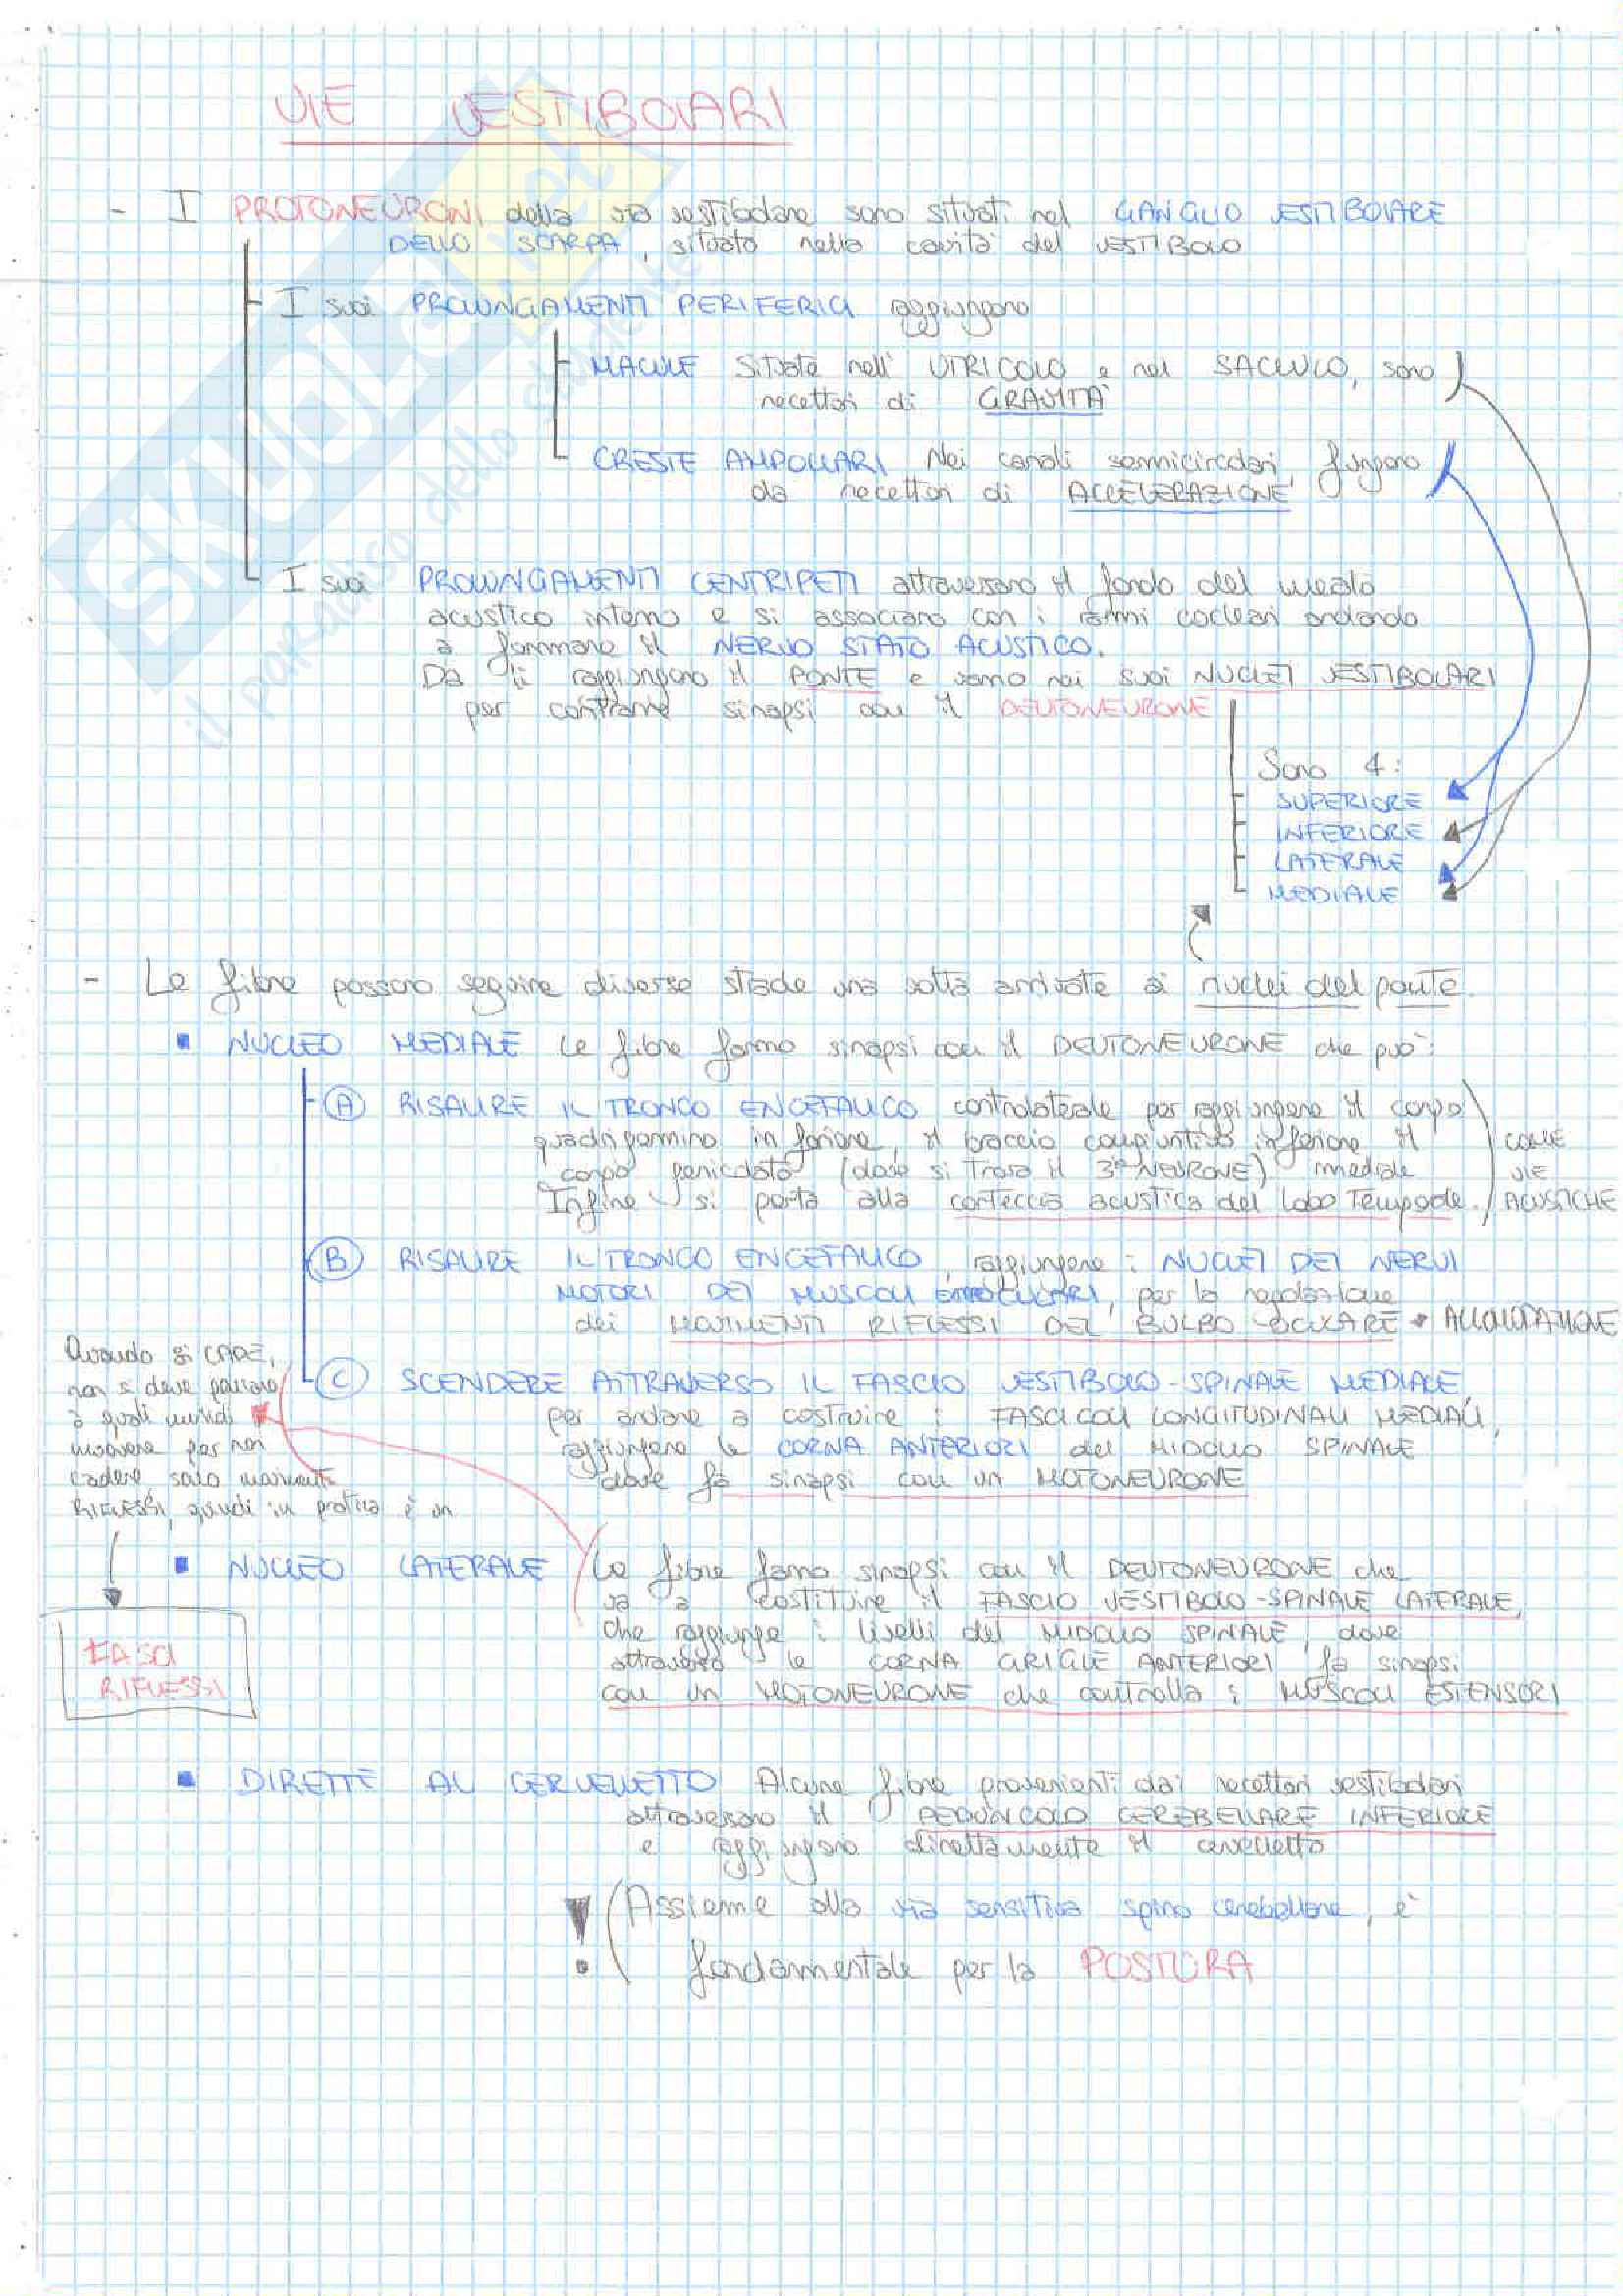 VIE VESTIBOLARI
- I PROTONEURONI della via vestibolare sono situati nel GANGLIO VESTIBOLARE
DELLO SCARPA, situato nella cavità del VESTIBOLO
I suoi PROLUNGAMENTI PERIFERICI raggiungono
MACULE situate nell' UTRICOLO e nel SACULO, sono
recettori di GRAVITÀ
CRESTE AMPOLLARI Nei canali semicircolari, fungono
da recettori di ACCELERAZIONE
I suoi PROLUNGAMENTI CENTRIPETI attraversano il fondo del meato
acustico interno e si associano con i rami cocleari andando
a formare il NERVO STATO ACUSTICO.
Da lì raggiungono il PONTE e vanno nei suoi NUCLEI VESTIBOLARI
per contrarre sinapsi con il DEUTONEURONE
Sono 4:
SUPERIORE
INFERIORE
LATERALE
MEDIALE
- Le fibre possono seguire diverse strade una volta arrivate ai nuclei del ponte.
▪ NUCLEO MEDIALE Le fibre fanno sinapsi con il DEUTONEURONE che può:
A RISALIRE IL TRONCO ENCEFALICO controlaterale per raggiungere il corpo
quadrigemino inferiore, il braccio congiuntivo inferiore il
corpo genicolato (dove si trova il 3° NEURONE) mediale
Infine si porta alla corteccia acustica del lobo Temporale.
COME
VIE
ACUSTICHE
B RISALIRE IL TRONCO ENCEFALICO, raggiungere i NUCLEI DEI NERVI
MOTORI DEI MUSCOLI, per la regolazione
dei MOVIMENTI RIFLESSI DEL BULBO OCULARE
C SCENDERE ATTRAVERSO IL FASCIO VESTIBOLO-SPINALE MEDIALE,
per andare a costruire i FASCICOLI LONGITUDINALI MEDIALI,
raggiungere le CORNA ANTERIORI del MIDOLLO SPINALE
dove fa sinapsi con un MOTONEURONE
Quando si CADE,
non si deve pensare
a quali muscoli
muovere per non
cadere sono movimenti
RIFLESSI, quindi in pratica è un
FASCI
RIFLESSI
▪ NUCLEO LATERALE Le fibre fanno sinapsi con il DEUTONEURONE che
va a costituire il FASCIO VESTIBOLO-SPINALE LATERALE,
che raggiunge i livelli del MIDOLLO SPINALE, dove
attraverso le CORNA GRIGIE ANTERIORI fa sinapsi
con un MOTONEURONE che controlla i MUSCOLI ESTENSORI
▪ DIRETTE AL CERVELLETTO Alcune fibre provenienti dai recettori vestibolari
attraversano il PEDUNCOLO CEREBELLARE INFERIORE
e raggiungono direttamente il cervelletto
! (Assieme alla via sensitiva spino cerebellare, è
fondamentale per la POSTURA
SKUOLA.net
il paradiso dello studente